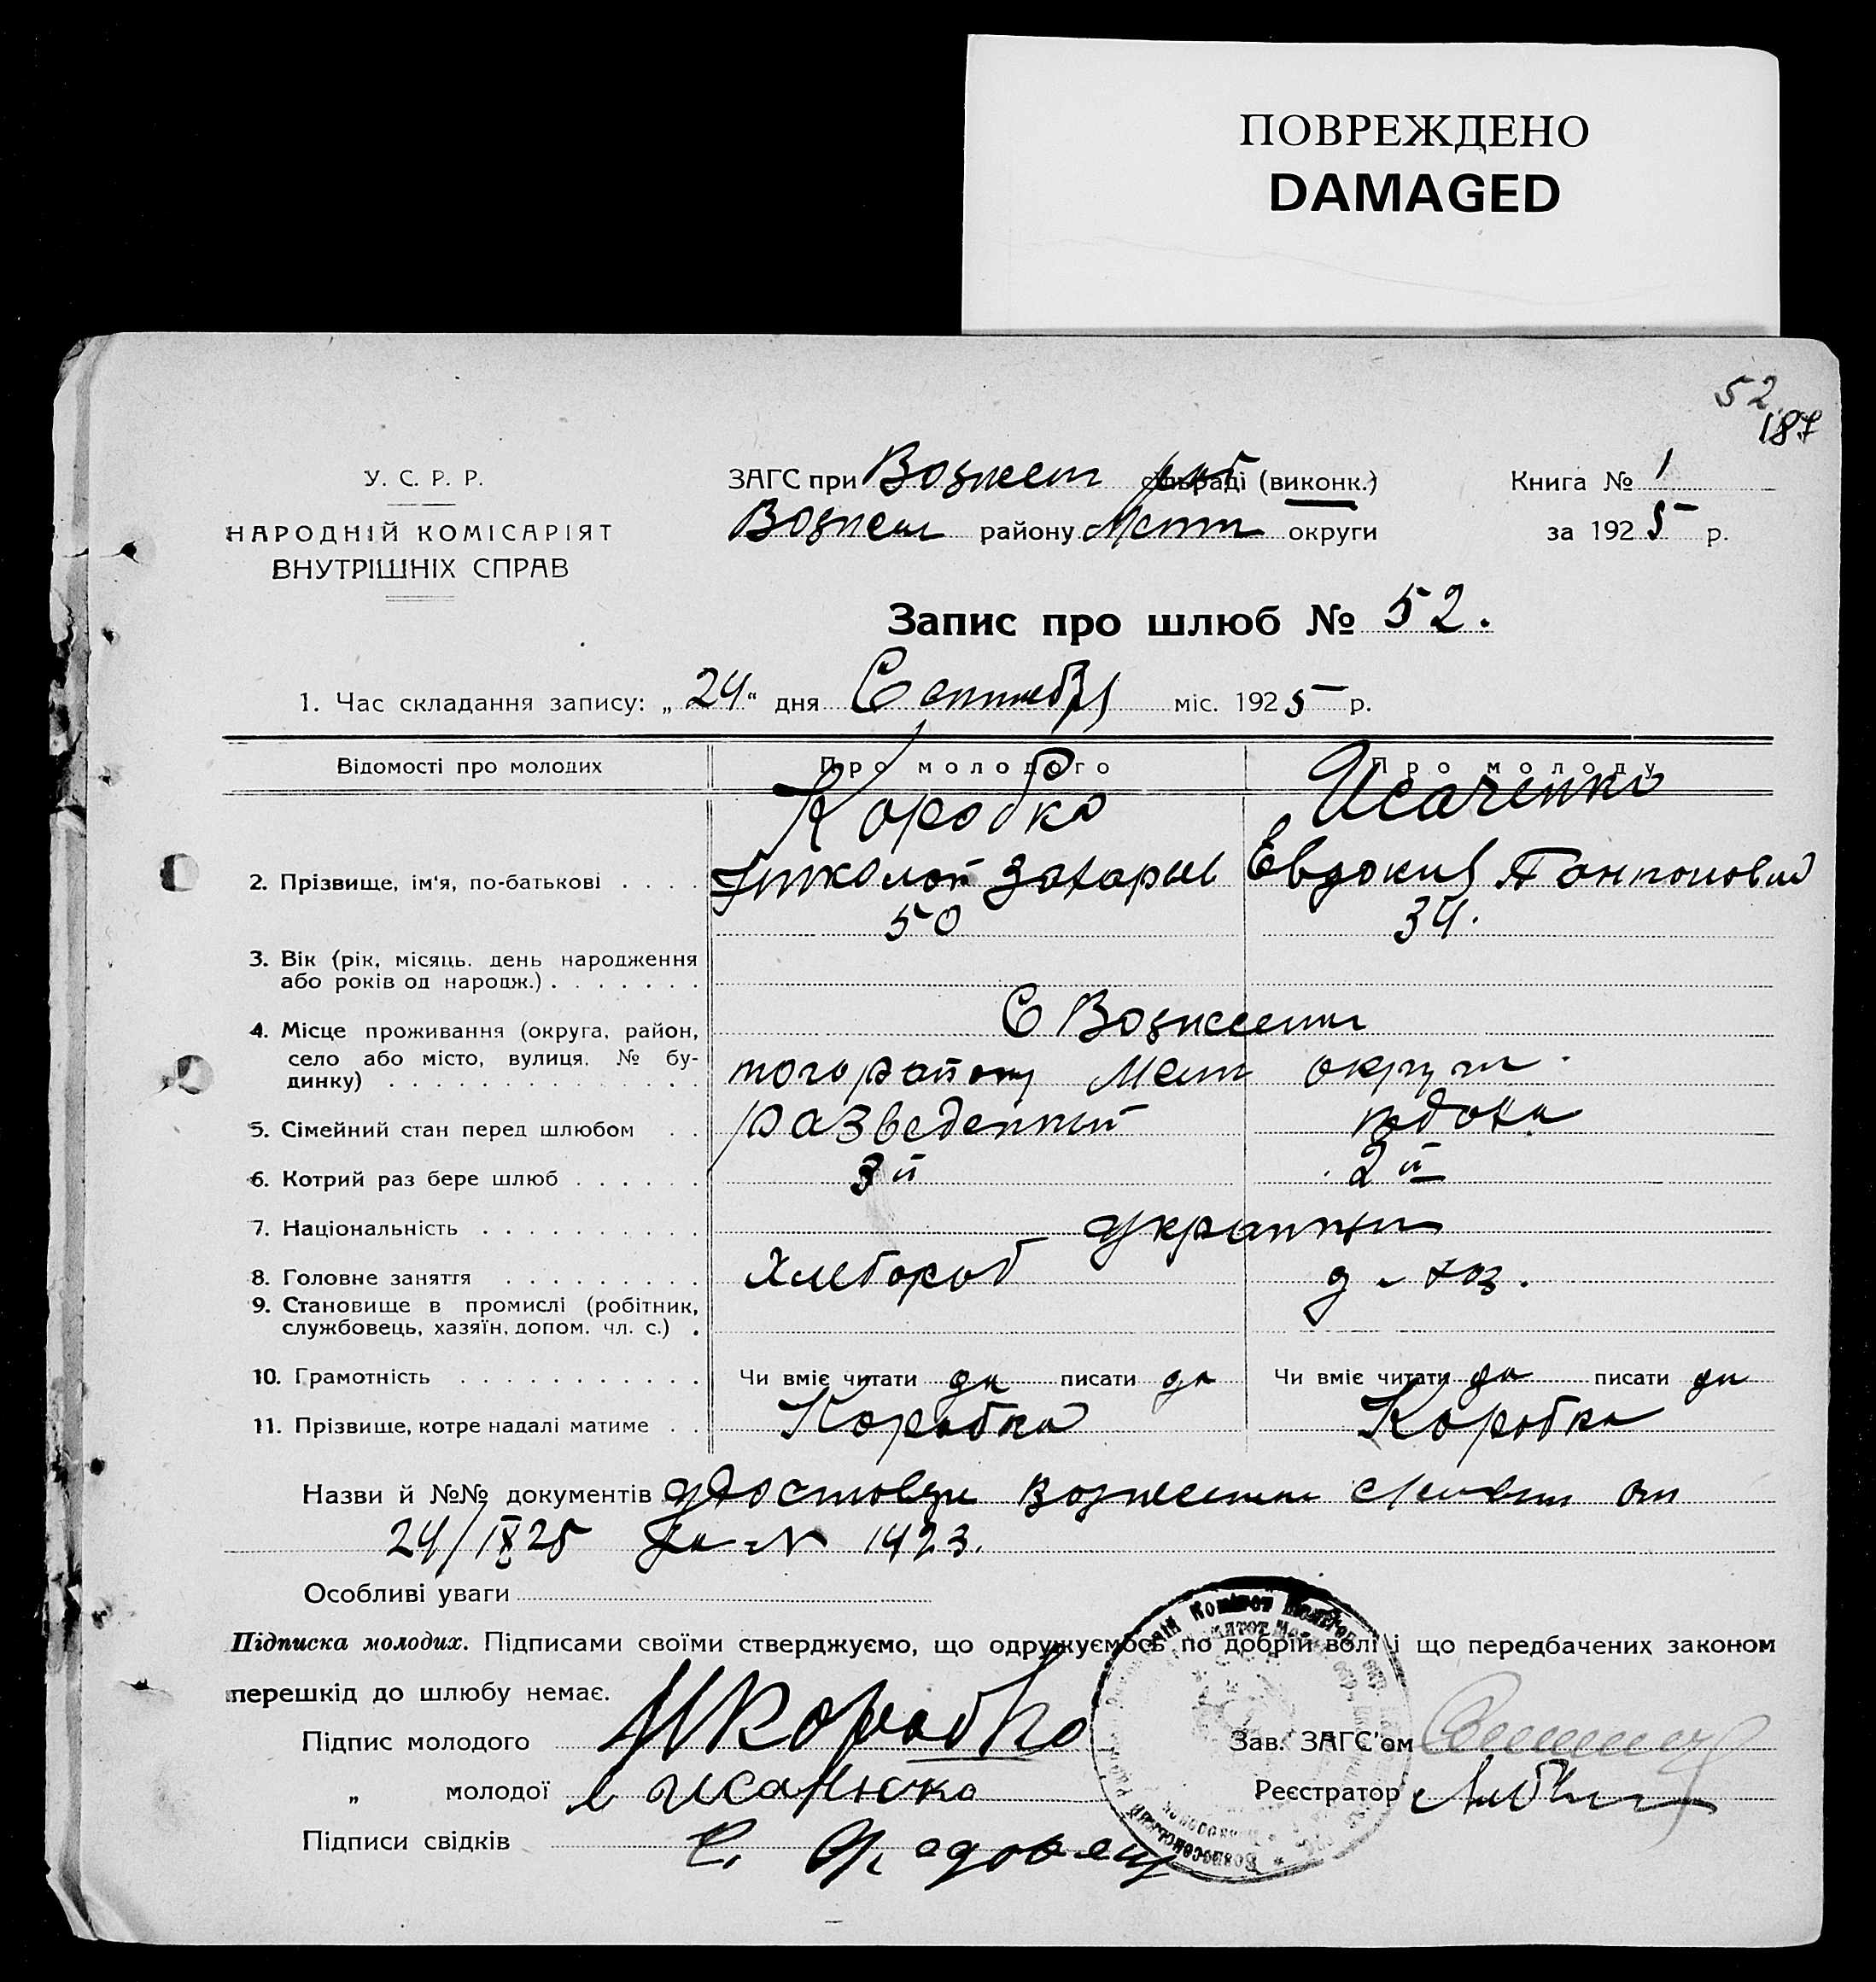 ПОВРЕЖДЕНО
DAMAGED
52
187
У. С. Р. Р.
НАРОДНІЙ КОМІСАРІЯТ
ВНУТРІШНІХ СПРАВ
ЗАГС при Вознесен сільраді (виконк.)
Вознесен району Мелит округи
Книга № 1
за 1925 р.
Запис про шлюб № 52.
1. Час складання запису: „24“ дня Сентября міс. 1925 р.
Відомості про молодих Про молодого Про молоду
Коробка Исаченко
2. Прізвище, ім'я, по-батькові . . . . Николай Захарьев Евдокия
50 34.
3. Вік (рік, місяць. день народження
або років од народж.) . . . . . . .
4. Місце проживання (округа, район,
село або місто, вулиця. № бу-
динку) . . . . . . . . . . . . . .
С Вознесенки
того району Мелит округи
5. Сімейний стан перед шлюбом . . разведенный вдова
6. Котрий раз бере шлюб . . . . . . 3й 2й
7. Національність . . . . . . . . . . украинцы
8. Головне заняття . . . . . . . . . Хлебороб д. хоз.
9. Становище в промислі (робітник,
службовець, хазяїн, допом. чл. с.) .
10. Грамотність . . . . . . . . . . . Чи вміє читати да писати да Чи вміє читати да писати да
11. Прізвище, котре надалі матиме . . Коробка Коробка
Назви й №№ документів удостовер Вознесенск от
24/IX 25 за № 1423.
Особливі уваги
Підписка молодих. Підписами своїми стверджуємо, що одружуємось по добрій волі і що передбачених законом
перешкід до шлюбу немає.
Підпис молодого Н Коробко
Зав. ЗАГС'ом
„ молодої Исаченко
Реєстратор
Підписи свідків